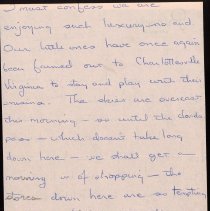 I must confess we are
enjoying such luxury - no end
Our little ones have once again
been farmed out to Charlottesville
Virginia to stay and play with their
mama. The skies are overcast
this morning - so until the clouds
pass - which doesn't take long
down here - we shall get a
morning of shopping - the
stores down here are so tempting